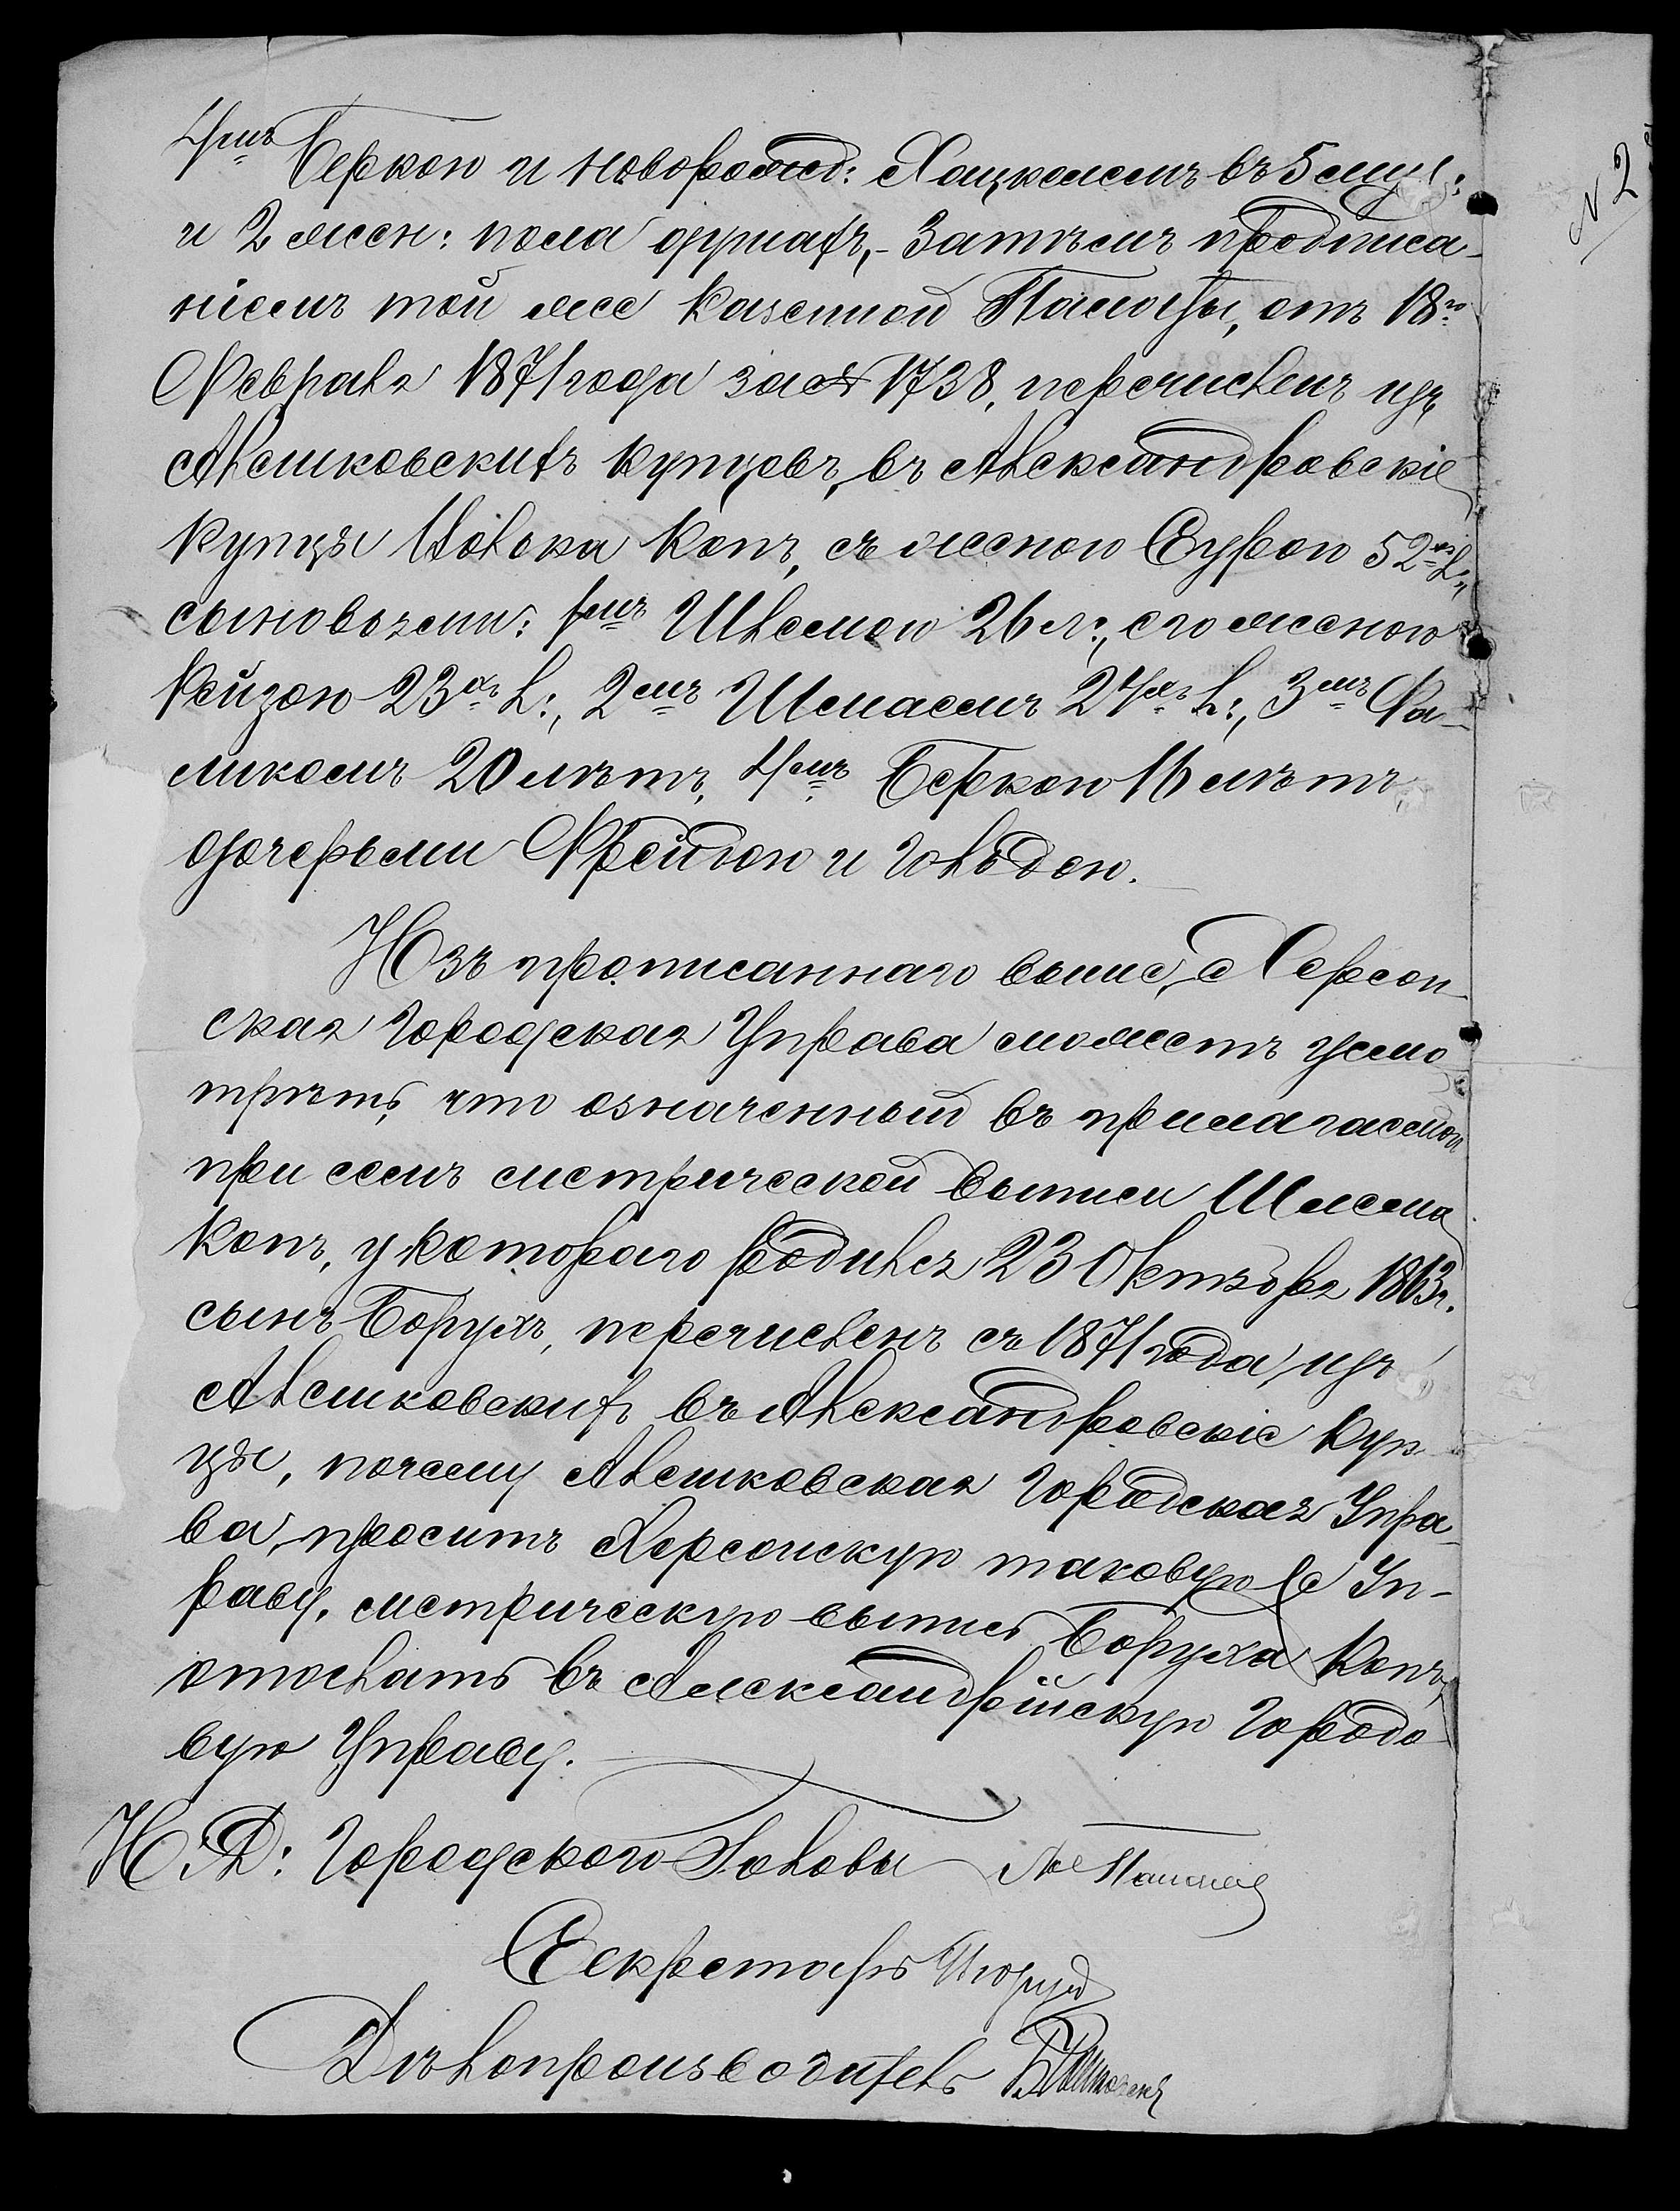 4мъ Беркою и новорожд: Хацкелемъ въ 5 муж:
и 2 жен: пола душахъ,- Затѣмъ предписа-
ніемъ той же Казенной Палаты, отъ 18го
Февраля 1871 года за № 1738, перечисленъ изъ
Алешковскихъ купцовъ, въ Александровскіе
купцы Іолька Копъ, съ женою Сурою 52хъ л.,
сыновьями: 1мъ Шлемою 26 л., его женою
Рейзою 23хъ л:, 2мъ Шмаемъ 24хъ л:, 3мъ Фа-
ликомъ 20 лѣтъ, 4мъ Беркою 16 лѣтъ,
дочерьми Фрейдою и Гольдою.
Изъ прописаннаго выше, Херсон-
ская Городская Управа можетъ усмо
трѣть, что означенный въ прилагаемой
при семъ метрической выписи Шлема
Копъ, у котораго родился 23 Октября 1863 г.
сынъ Борухъ, перечисленъ съ 1871 года, изъ
Алешковскихъ въ Александровскіе куп
цы, почему Алешковская Городская Упра-
ва, проситъ Херсонскую таковую же Уп-
раву, метрическую выпись Боруха Копъ,
отослать въ Александрійскую Городо-
вую Управу.
И.Д: Городского Головы
Секретарь
Дѣлопроизводитель
N 2